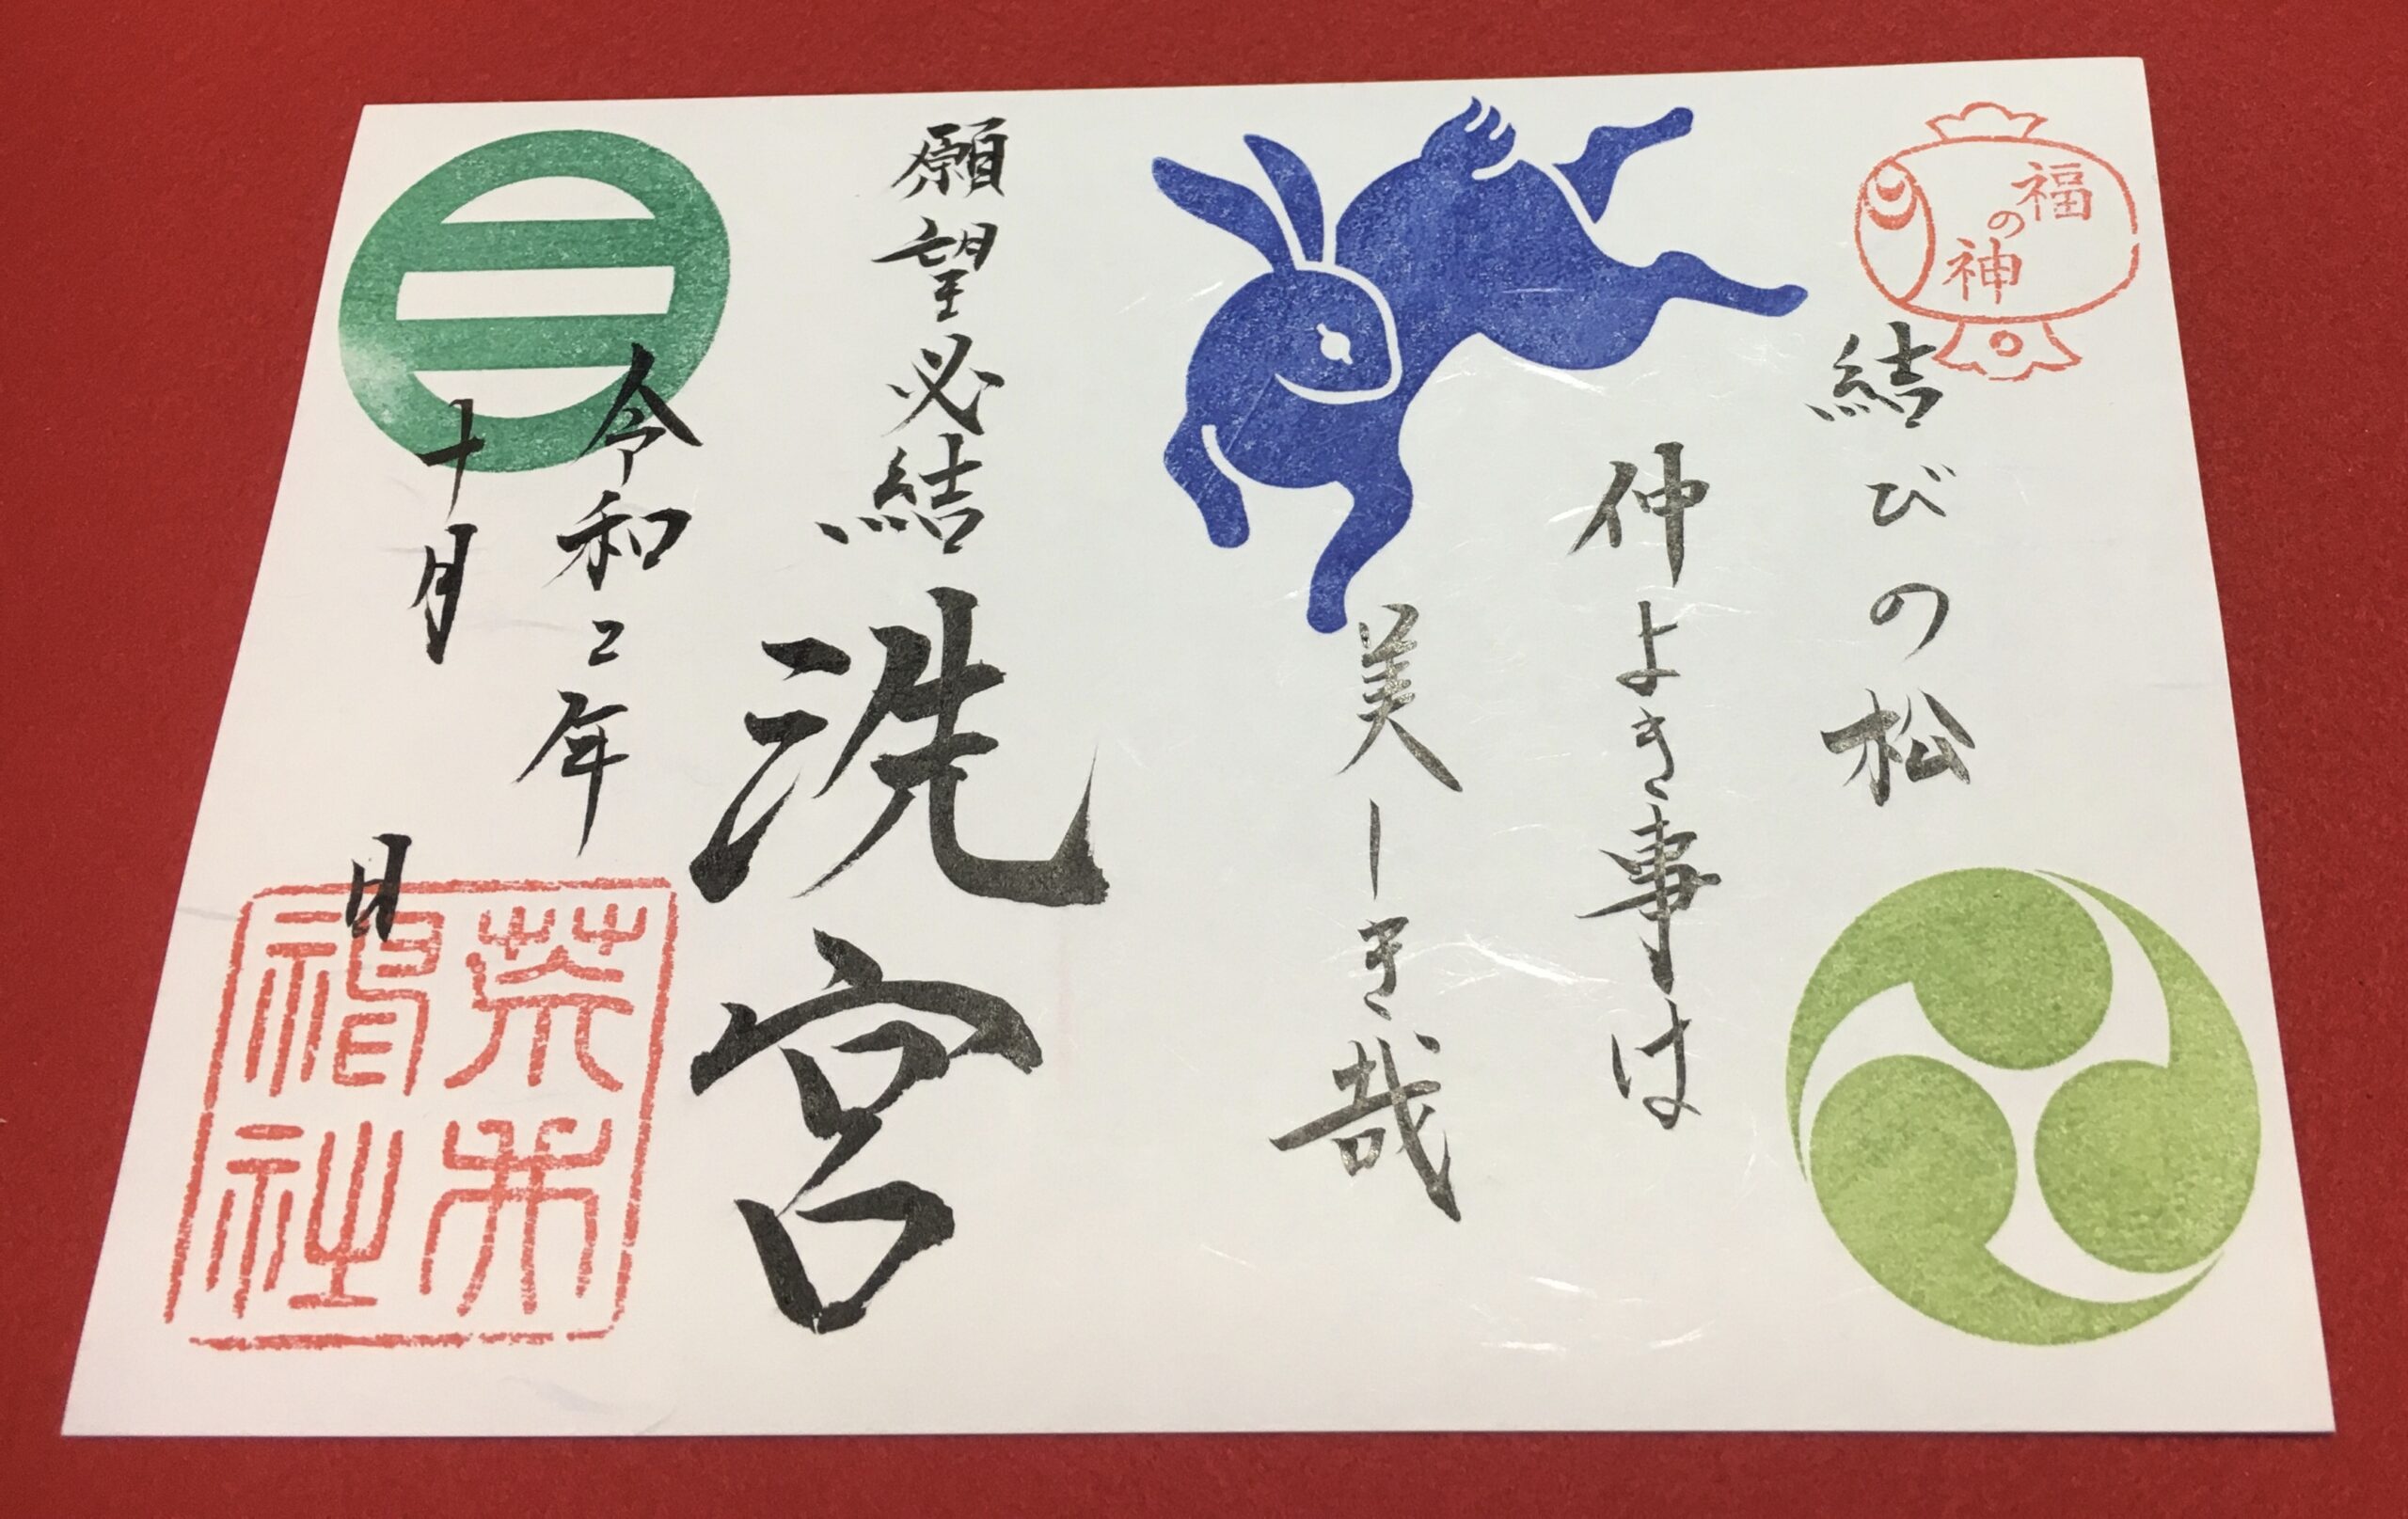 福の神
結びの松
仲よき事は
美しき哉
願望必結
洗宮
令和二年
十月 日
荒井神社